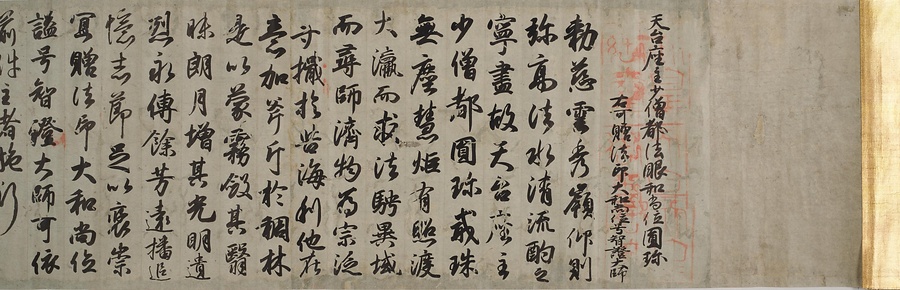 天台座主少僧都法眼和尚位圓珎
右可贈法印大和尚位号智證大師
勅慈雲秀嶺仰則
弥高法水清流酌之
寧盡故天台座主
少僧都圓珎戒珠
無塵慧炬有照渡
大瀛而求法騁異域
而尋師濟物為宗泛
舟檝於苦海利他在
意加斧斤於稠林
是以蒙霧斂其翳
昧朗月増其光明遺
烈永傳餘芳遠播追
憶志節足以褒崇
冝贈法印大和尚位
諡号智證大師可依
前件主者施行